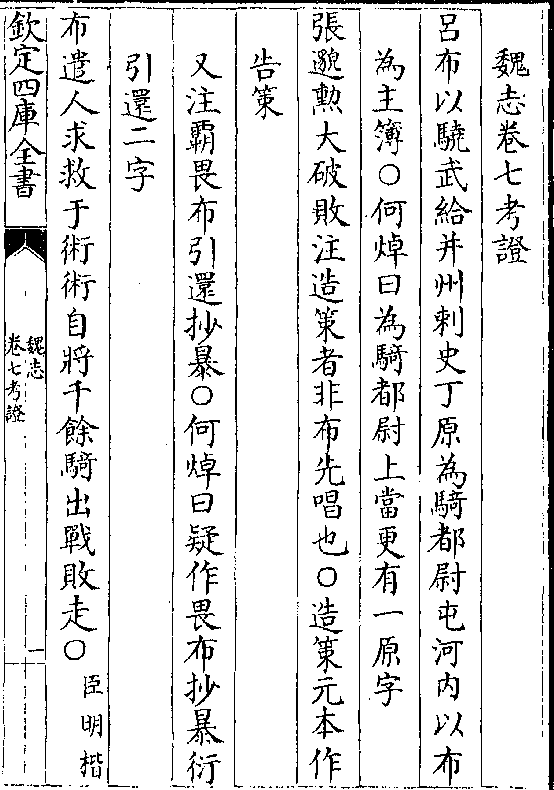 魏志卷七考證
呂布以驍武給并州刺史丁原為騎都尉屯河内以布
為主簿○何焯曰為騎都尉上當更有一原字
張邈勲大破敗注造策者非布先唱也○造策元本作
告策
又注霸畏布引還抄暴○何焯曰疑作畏布抄暴衍
引還二字
布遣人求救于術術自將千餘騎出戰敗走○臣明楷
欽定四庫全書
魏志
卷七考證
一